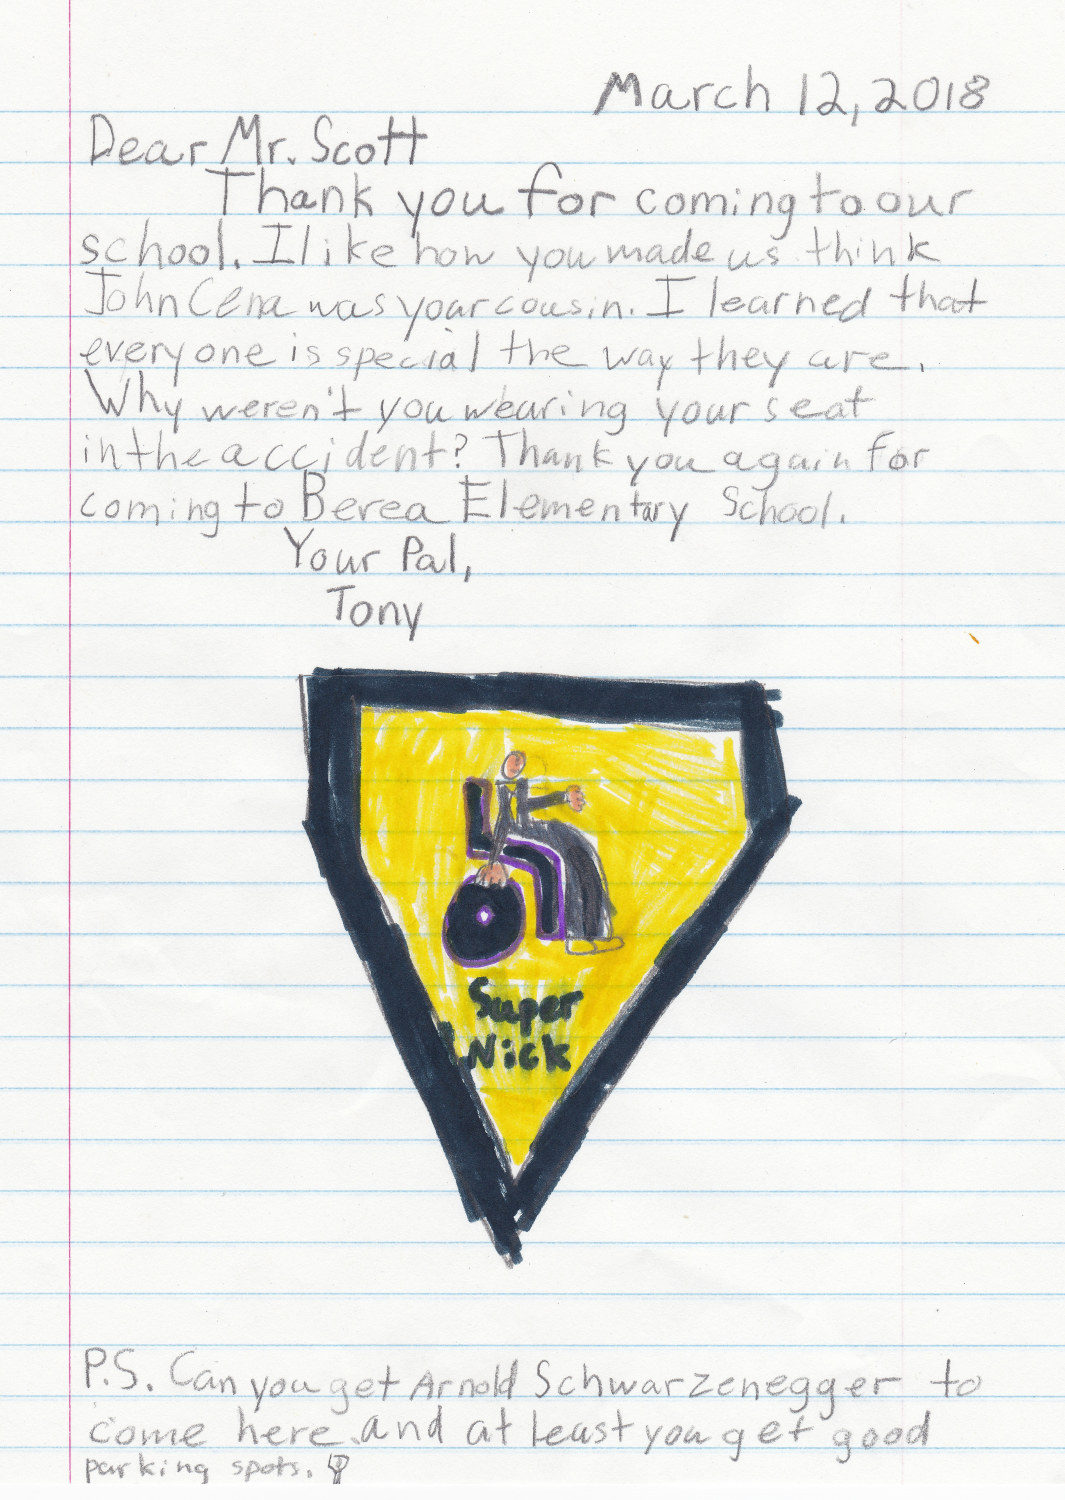 March 12, 2018
Dear Mr. Scott
Thank you for coming to our
school. I like how you made us think
John Cena was your cousin. I learned that
everyone is special the way they are.
Why weren't you wearing your seat
in the accident? Thank you again for
coming to Berea Elementary School.
Your Pal,
Tony
Super
Nick
P.S. Can you get Arnold Schwarzenegger to
come here and at least you get good
parking spots.